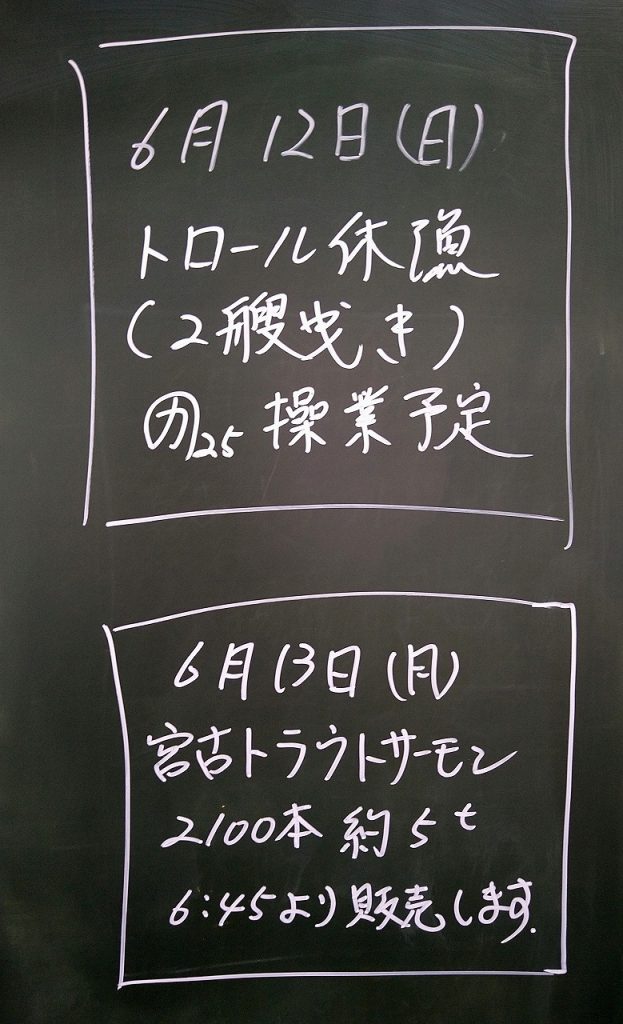 6月12日(日)
トロール休漁
(2艘曵き)
25 操業予定
6月13日(月)
宮古トラウトサーモン
2100本 約5t
6:45より販売します.